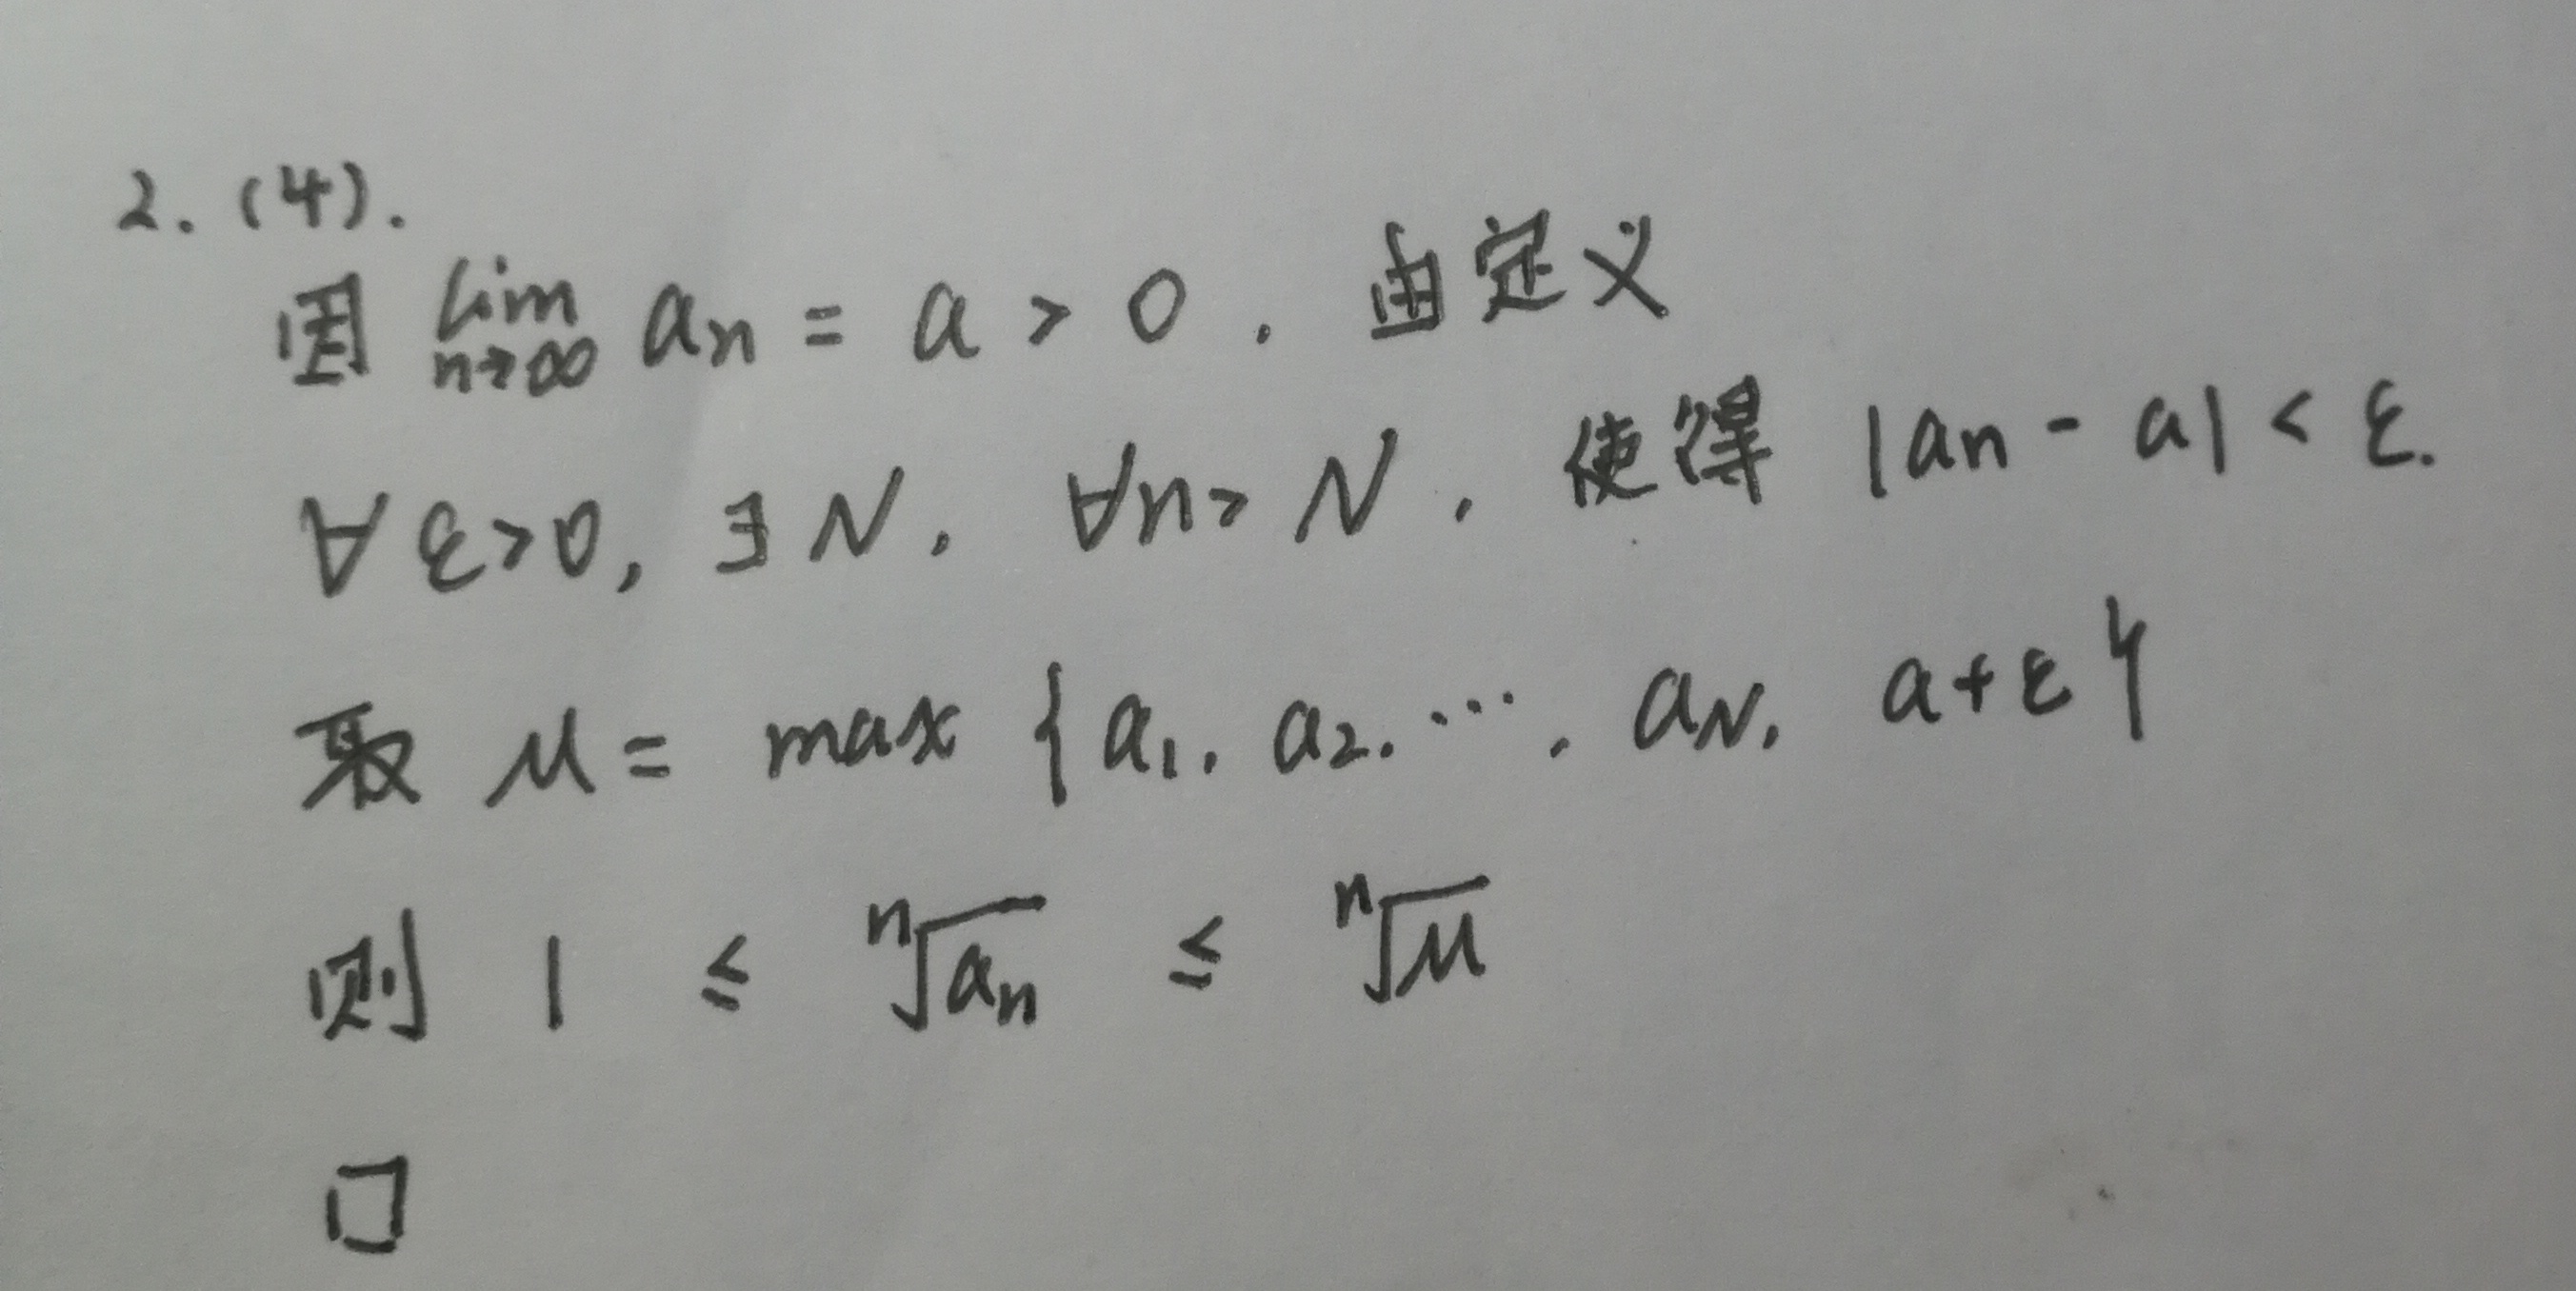 2. (4).
因 lim n→∞ an = a > 0. 由定义
∀ ε>0, ∃ N, ∀n> N, 使得 |an - a| < ε.
取 M = max {a1, a2, ..., aN, a+ε}
则 1 ≤ ⁿ√an ≤ ⁿ√M
□